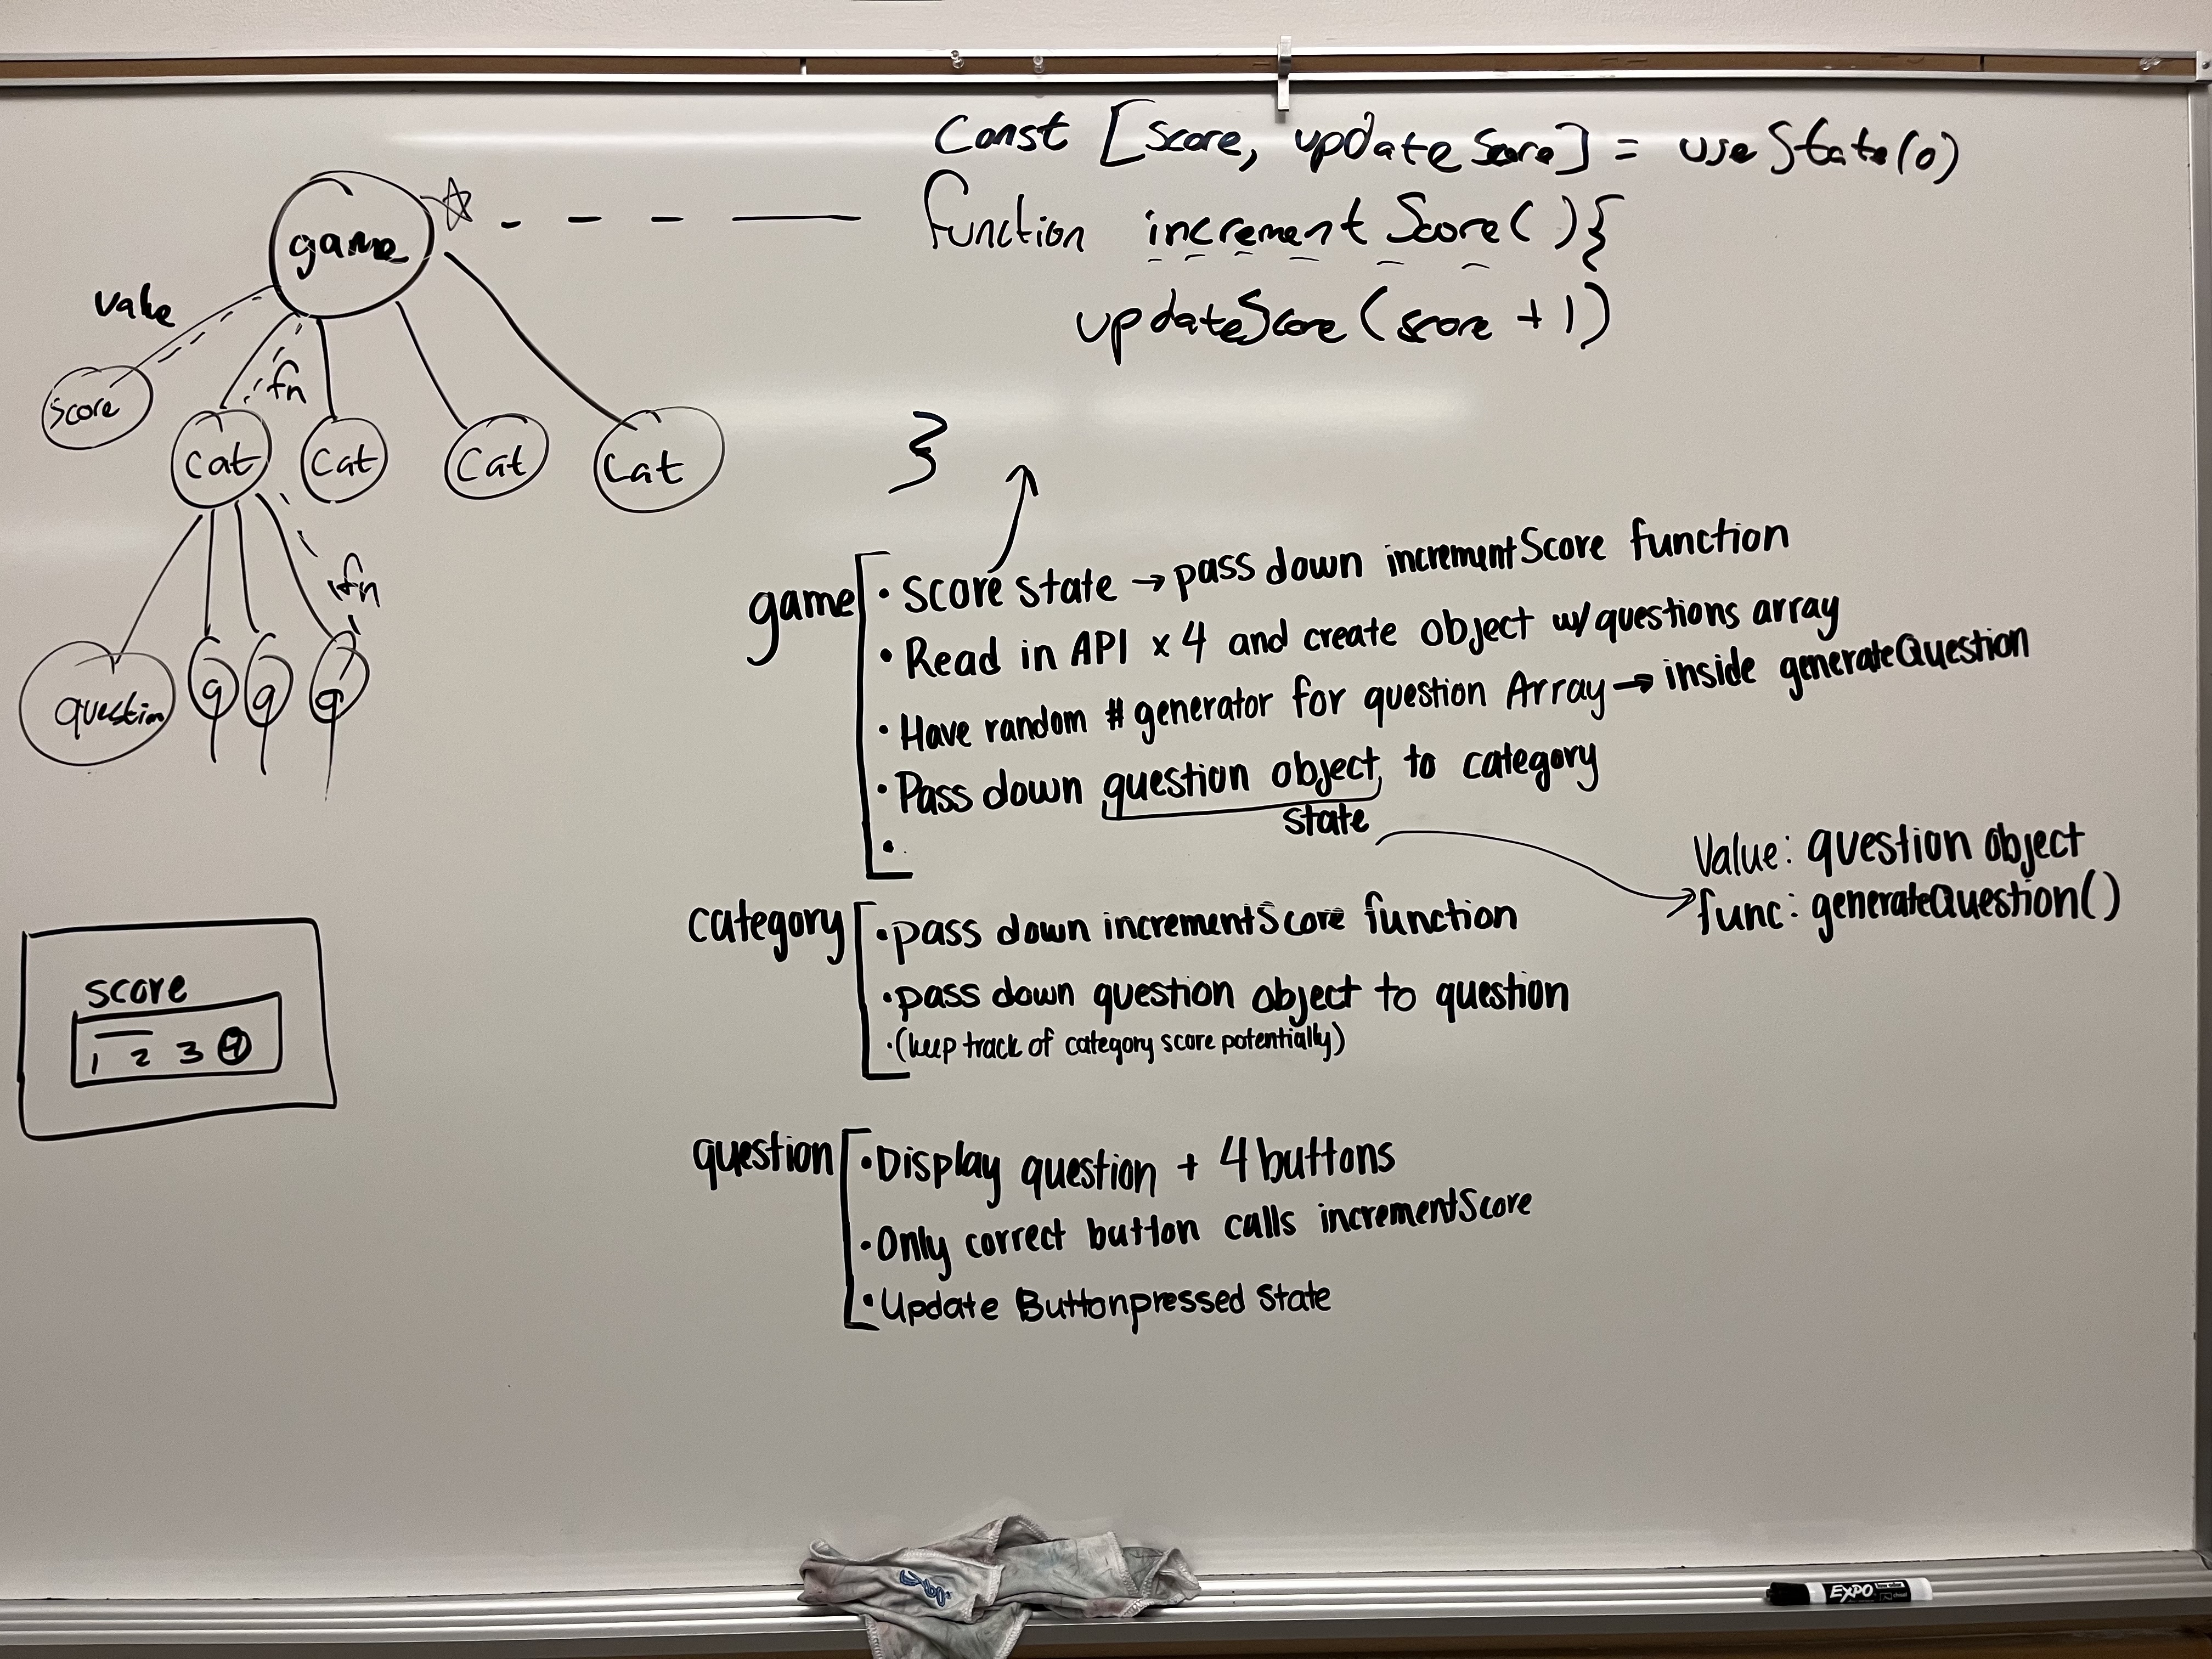 Const [score, updateScore] = useState(0)
function incrementScore(){
updateScore(score + 1)
}
game
value
score
fn
cat
cat
cat
cat
fn
question
q
q
q
score
1 2 3 4
game
• score state → pass down incrementScore function
• Read in API x 4 and create object w/ questions array
• Have random # generator for question Array → inside generateQuestion
• Pass down question object to category
state
•
Value: question object
func: generateQuestion()
category
• pass down incrementScore function
• pass down question object to question
• (keep track of category score potentially)
question
• Display question + 4 buttons
• Only correct button calls incrementScore
• Update Buttonpressed state
EXPO